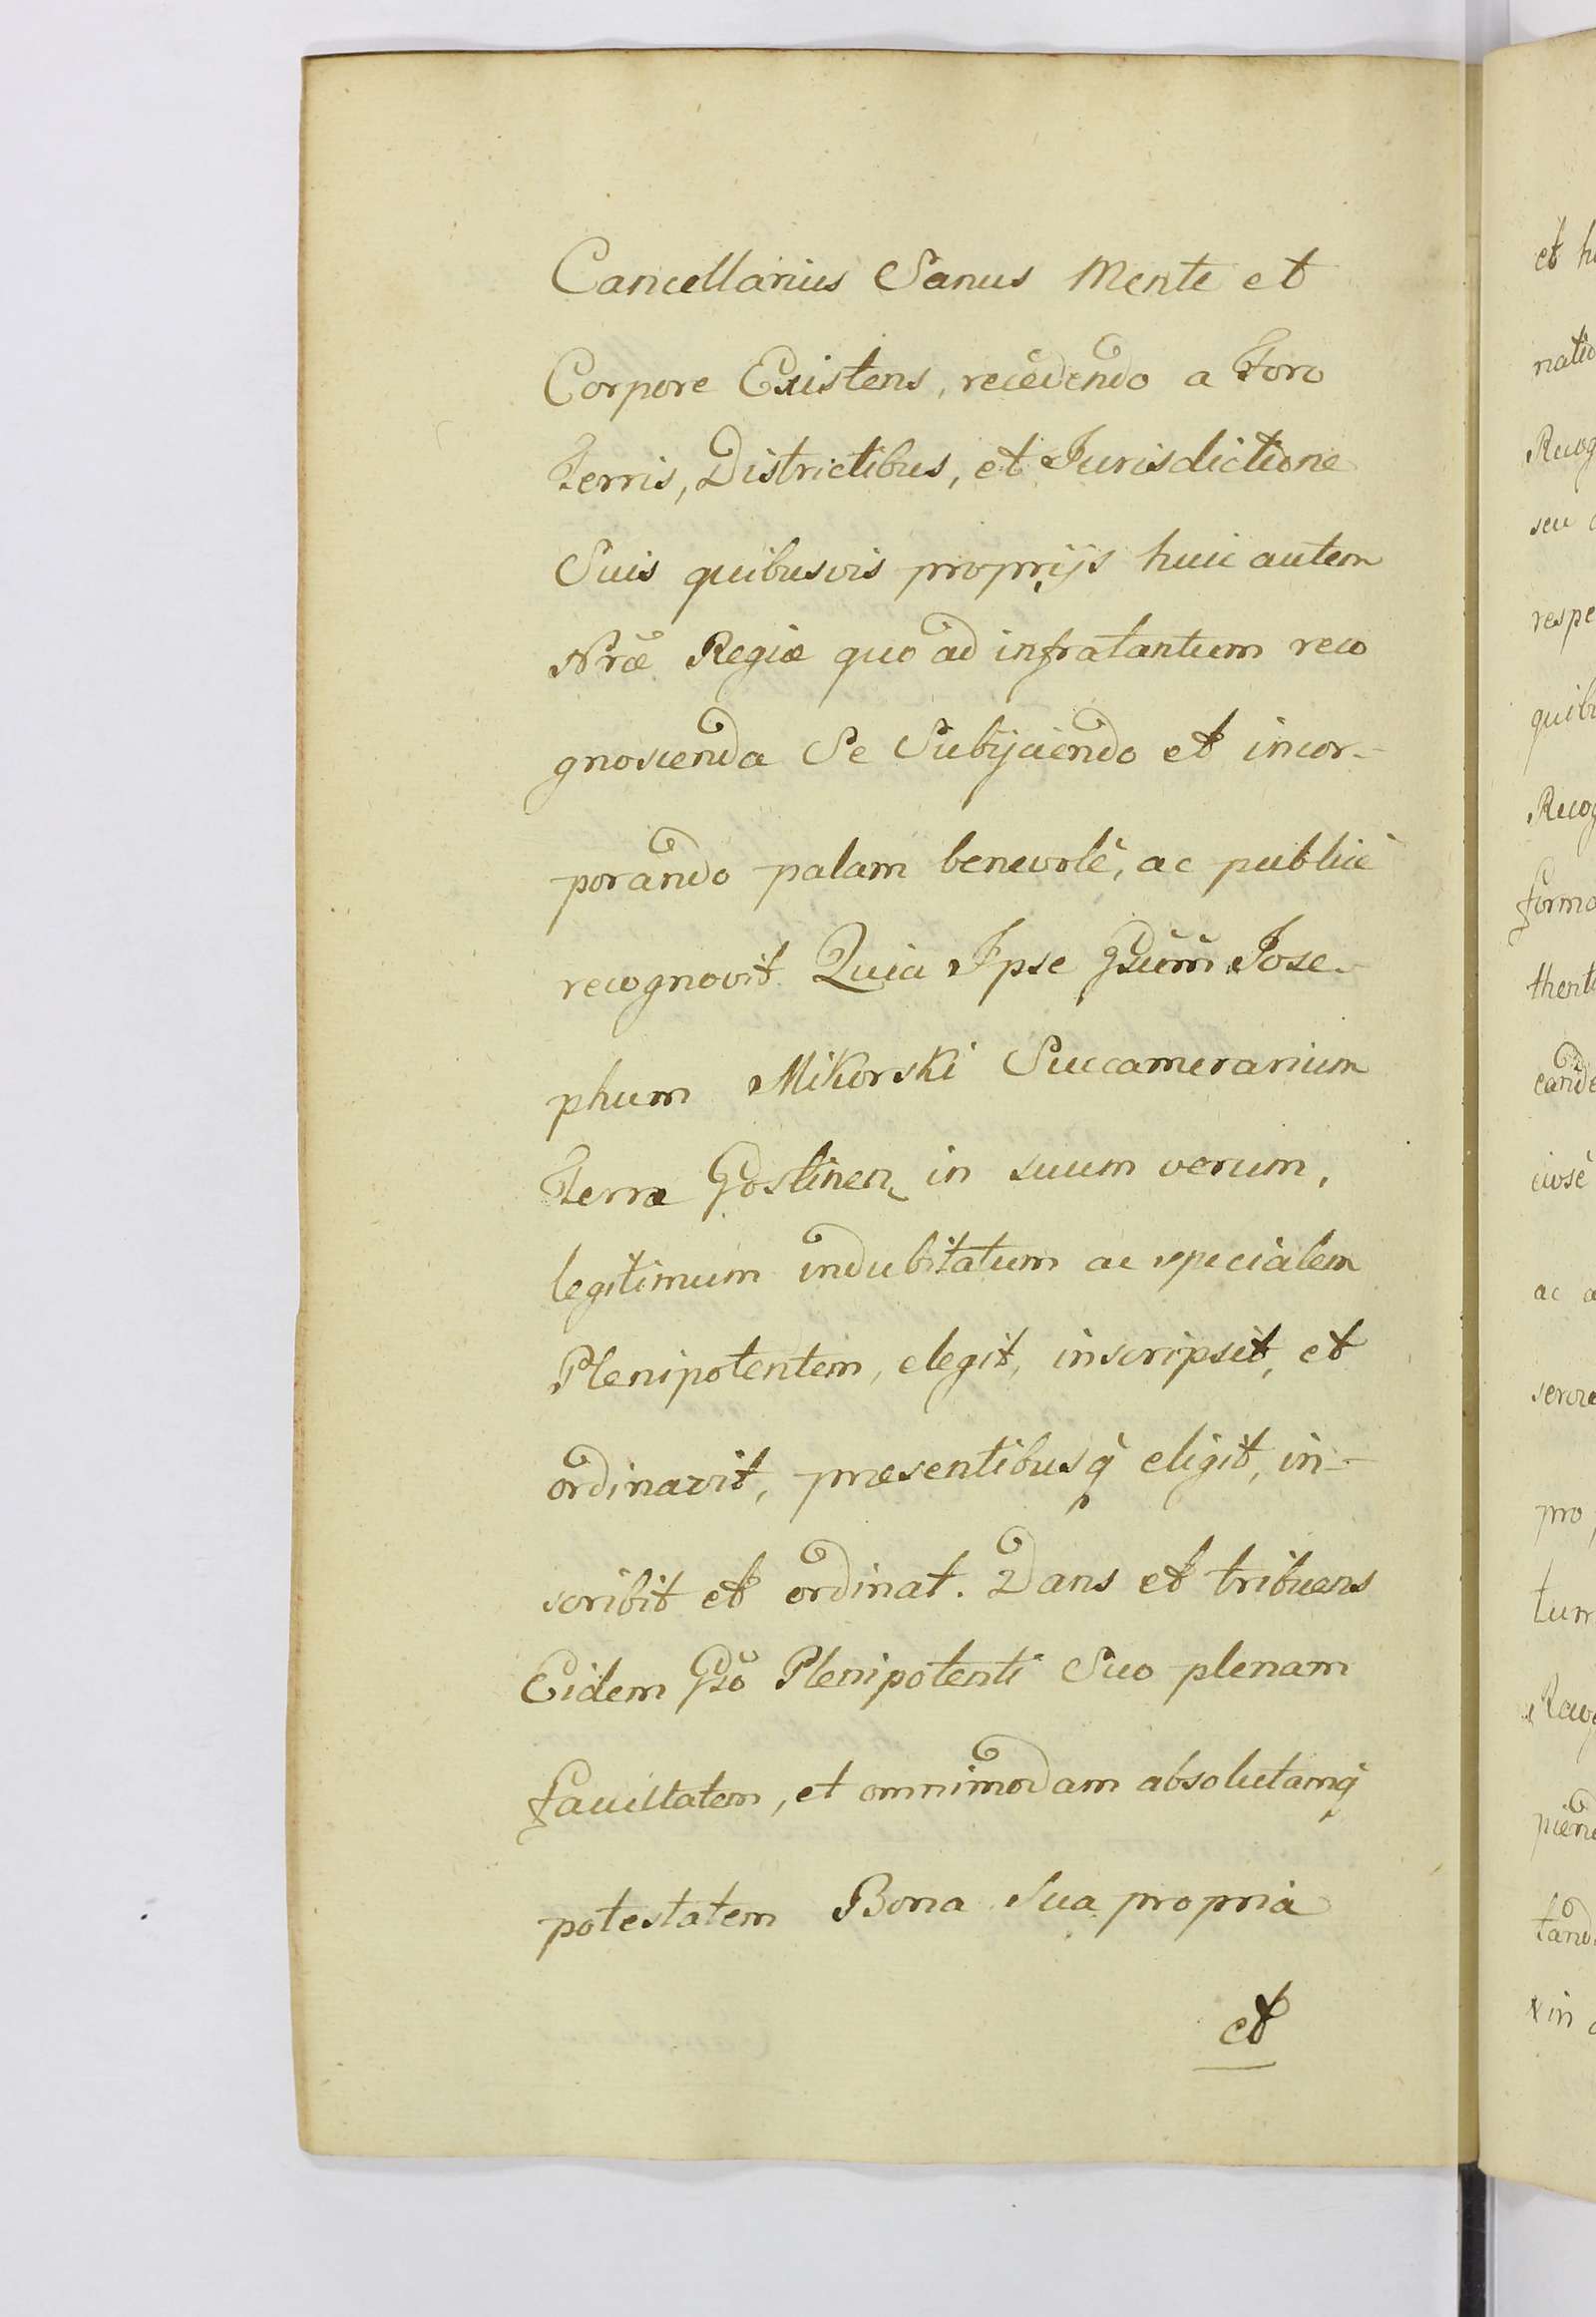 Cancellarius Sanus Mente et
Corpore Existens, recedendo a Foro
Terris, Districtibus, et Jurisdictione
Suis quibusvis proprijs huic autem
Nræ Regiæ quo ad infratantum reco
gnoscenda Se Subijciendo et incor-
porando palam benevolè, ac publicè
recognovit Quia Ipse Gsum Jose-
phum Mikorski Succamerarium
Terræ Gostinen in suum verum,
legitimum indubitatum ac specialem
Plenipotentem, elegit, inscripsit, et
ordinavit, præsentibusq̀ eligit, in-
scribit et ordinat. Dans et tribuens
Eidem Gso Plenipotenti Suo plenam
facultatem, et omnimodam absolutamq̀
potestatem Bona Sua propria
et
et h
natio
Recog
seu
respe
quib
Recog
forma
thent
cande
ciose
ac a
serva
pro
tum
tand
in